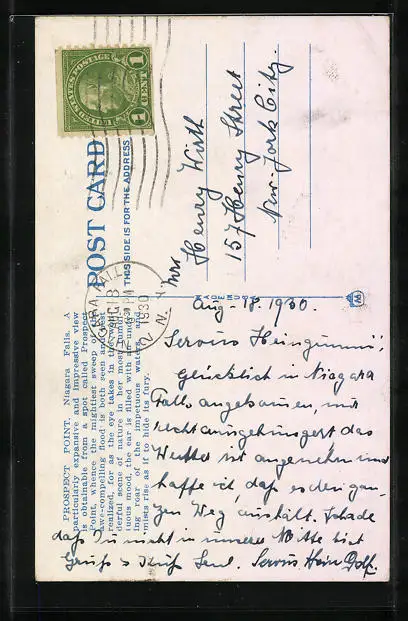 UNITED STATES POSTAGE
1 CENT 1
POST CARD
THIS SIDE IS FOR THE ADDRESS
NIAGARA FALLS
AUG 18
1930
N. Y.
Mrs
Henry Wirth
157 Henry Street
New-York City.
PROSPECT POINT, Niagara Falls. A
particularly expansive and impressive view
is obtainable from a spot called Prospect
Point, whence the mightiest sweep of the
awe-compelling flood is both seen and best
realized, for as the eye takes in the won-
derful scene of nature in her most tumul-
tuous mood, the ear is filled with an undy-
ing roar of the impetuous waters and
mists rise as if to hide its fury.
MADE IN U.S.
Aug-18. 1930.
Servus
Glücklich in Niagara
Falls angekommen, und
nicht ausgehungert das
Wetter ist angenehm und
hoffe ich, daß es den gan-
zen Weg aushält. Schade
daß Du nicht in unserer Mitte bist
Gruß & Kuß Servus